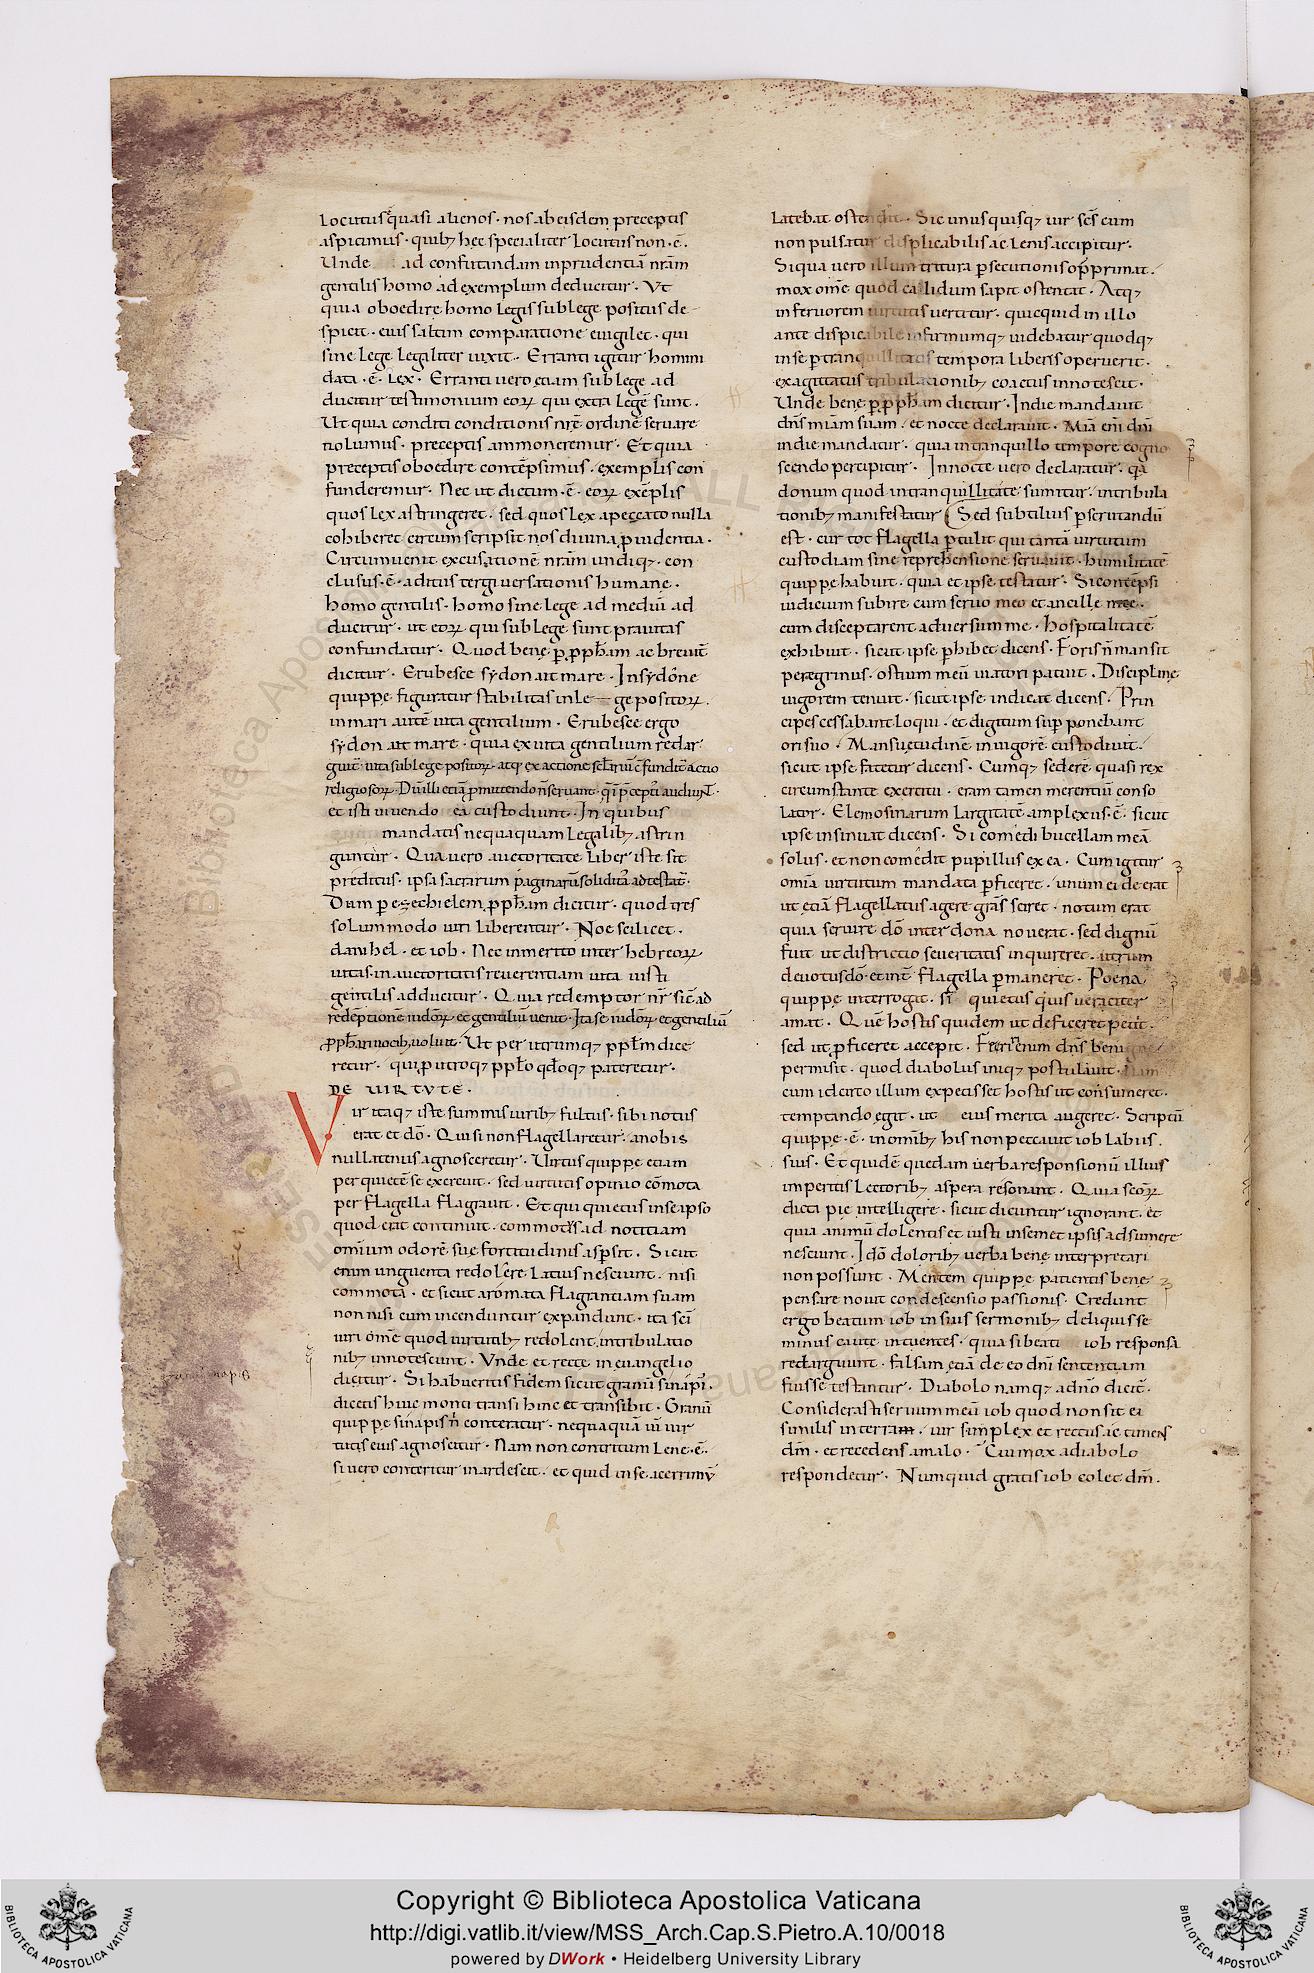 locutus quasi alienos · nos ab eisdem preceptis
aspicimus · quib; hec specialiter locutus non · ē ·
Unde ad confutandam inprudentiā nr̄am
gentilis homo ad exemplum deducitur · Vt
quia oboedire homo legis sub lege positus de
spicit · eius saltim comparatione euigilet · qui
sine lege legaliter uixit · Erranti igitur homini
data · ē · lex · Erranti uero etiam sub lege ad
ducitur testimonium eoꝝ qui extra legē sunt ·
Ut quia conditi conditionis nr̄ē ordinē seruare
nolumus · preceptis ammoneremur · Et quia
preceptis oboedire contēpsimus · exemplis con
funderemur · Nec ut dictum · ē · eoꝝ exēplis
quos lex astringeret · sed quos lex a peccato nulla
cohiberet circumscripsit nos diuina ꝓuidentia ·
Circumuenit excusationē nr̄am undiq; · con
clusus · ē · aditus tergiuersationis humane ·
homo gentilis · homo sine lege ad mediū ad
ducitur · ut eoꝝ qui sub lege sunt prauitas
confundatur · Quod bene ꝑ ꝓph̄am ac breuit̄
dicitur · Erubesce sydon ait mare · In sydone
quippe figuratur stabilitas in le ge positoꝝ ·
in mari autē uita gentilium · Erubesce ergo
sydon ait mare · quia ex uita gentilium redar
guit̄ uita sub lege positoꝝ · atq; ex actione sclariū cfundit̄ actio
religiosoꝝ · Dū illi etiā ꝓmittendo n̄ seruant · q̄ i p̄ceptis audiunt̄ ·
et isti uiuendo ea custodiunt · In quibus
mandatis nequaquam legalib; astrin
guntur · Qua uero auctoritate liber iste sit
preditus · ipsa sacrarum paginarū soliditas adtestat̄ ·
Dum ꝑ ezechielem ꝓph̄am dicitur · quod tres
solummodo uiri liberentur · Noe scilicet ·
danihel · et iob · Nec inmerito inter hebreoꝝ
uitas · in auctoritatis reuerentiam uita iusti
gentilis adducitur · Quia redemptor nr̄ sic̄ ad
redēptionē iudeoꝝ et gentiliū uenit · Ita se iudeoꝝ et gentiliū
ꝓph̄ari uocib; uoluit · Ut per utrumq; ppl̄m dice
retur · qui ꝓ utroq; ppl̄o qdoq; pateretur ·
DE VIRTUTE ·
Vir itaq; iste summis uirib; fultus · sibi notus
erat et dō · Qui si non flagellaretur · a nobis
nullatenus agnosceretur · Uirtus quippe etiam
per quietē se exercuit · sed uirtutis opinio cōmota
per flagella flagrauit · Et qui quietus in se ipso
quod erat continuit · commotus ad notitiam
omnium odorē sue fortitudinis asp̄sit · Sicut
enim unguenta redolere latius nesciunt · nisi
commota · et sicut aromata flagrantiam suam
non nisi cum incenduntur expandunt · ita sc̄i
uiri om̄e quod uirtutib; redolent in tribulatio
nib; innotescunt · Vnde et recte in euangelio
dicitur · Si habueritis fidem sicut granū sinapis ·
dicetis huic monti transi hinc et transibit · Granū
quippe sinapis n̄ conteratur · nequaquā uī uir
tutis eius agnoscitur · Nam non contritum lene · ē ·
si uero conteritur inardescit · et quid in se acerrimū
latebat ostendit · Sic unusquisq; uir sc̄s cum
non pulsatur displicabilis ac lenis accipitur ·
Si qua uero illum tritura ꝑsecutionis opprimat ·
mox om̄e quod calidum sapit ostentat · Atq;
in feruorem uirtutis uertitur · quicquid in illo
ante dispicabile infirmumq; uidebatur quodq;
in se ꝑ tranquillitatis tempora libens operuerit ·
exagitatus tribulationib; coactus innotescit ·
Unde bene ꝑ ꝓph̄am dicitur · In die mandauit
dn̄s mīam suam · et nocte declarauit · Mīa enī dn̄i
in die mandatur · quia in tranquillo tempore cogno
scendo percipitur · In nocte uero declaratur · qa
donum quod in tranquillitate sumitur · in tribula
tionib; manifestatur Sed subtilius ꝑscrutandū
est · cur tot flagella ꝑtulit qui tantā uirtutum
custodiam sine reprehensione seruauit · humilitatē
quippe habuit · quia et ipse testatur · Si contēpsi
iudicium subire cum seruo meo et ancille mee ·
cum disceptarent aduersum me · hospitalitatē
exhibuit · sicut ipse ꝑhibet dicens · Foris n̄ mansit
peregrinus · ostium meū uiatori patuit · Discipline
uigorem tenuit · sicut ipse indicat dicens · Prin
cipes cessabant loqui · et digitum suꝑponebant
ori suo · Mansuetudinē in uigorē custodiuit ·
sicut ipse fatetur dicens · Cumq; sederē quasi rex
circumstante exercitu · eram tamen merentiū conso
lator · Elemosinarum largitatē amplexus · ē · sicut
ipse insinuat dicens · Si comedi bucellam meā
solus · et non comedit pupillus ex ea · Cum igitur
omīa uirtutum mandata ꝑficeret · unum ei deerat
ut etiā flagellatus agere gras̄ sciret · notum erat
quia seruire dō inter dona nouerat · sed dignū
fuit ut districtio seueritatis inquireret · utrum
deuotus dō · et int̄ flagella ꝑmaneret · Poena
quippe interrogat · si quietus quis ueraciter
amat · Quē hostis quidem ut deficeret petiit ·
sed ut ꝓficeret accepit · Fieri enim dn̄s benigne
permisit · quod diabolus iniq; postulauit · Nam
cum idcirco illum expetisset hostis ut consumeret ·
temptando egit · ut eius merita augeret · Scriptū
quippe · ē · in omīb; his non peccauit iob labiis
suis · Et quidē quedam uerba responsionū illius
imperitis lectorib; aspera resonant · Quia scoꝝ
dicta pie intelligere · sicut dicuntur ignorant · et
quia animū dolentis et iusti in semet ipsis adsumere
nesciunt · Idō doloris uerba bene interpretari
non possunt · Mentem quippe patientis bene
pensare nouit condescensio passionis · Credunt
ergo beatum iob in suis sermonib; deliquisse
minus caute intuentes · quia si beati iob responsa
redarguunt · falsam etiā de eo dn̄i sententiam
fuisse testantur · Diabolo namq; a dn̄o dicit̄ ·
Considerasti seruum meū iob quod non sit ei
similis in terram · uir simplex et rectus ac timens
dm̄ · et recedens a malo · Cui mox a diabolo
respondetur · Numquid gratis iob colet dm̄ ·
Copyright © Biblioteca Apostolica Vaticana
http://digi.vatlib.it/view/MSS_Arch.Cap.S.Pietro.A.10/0018
powered by DWork • Heidelberg University Library
BIBLIOTECA APOSTOLICA VATICANA
BIBLIOTECA APOSTOLICA VATICANA